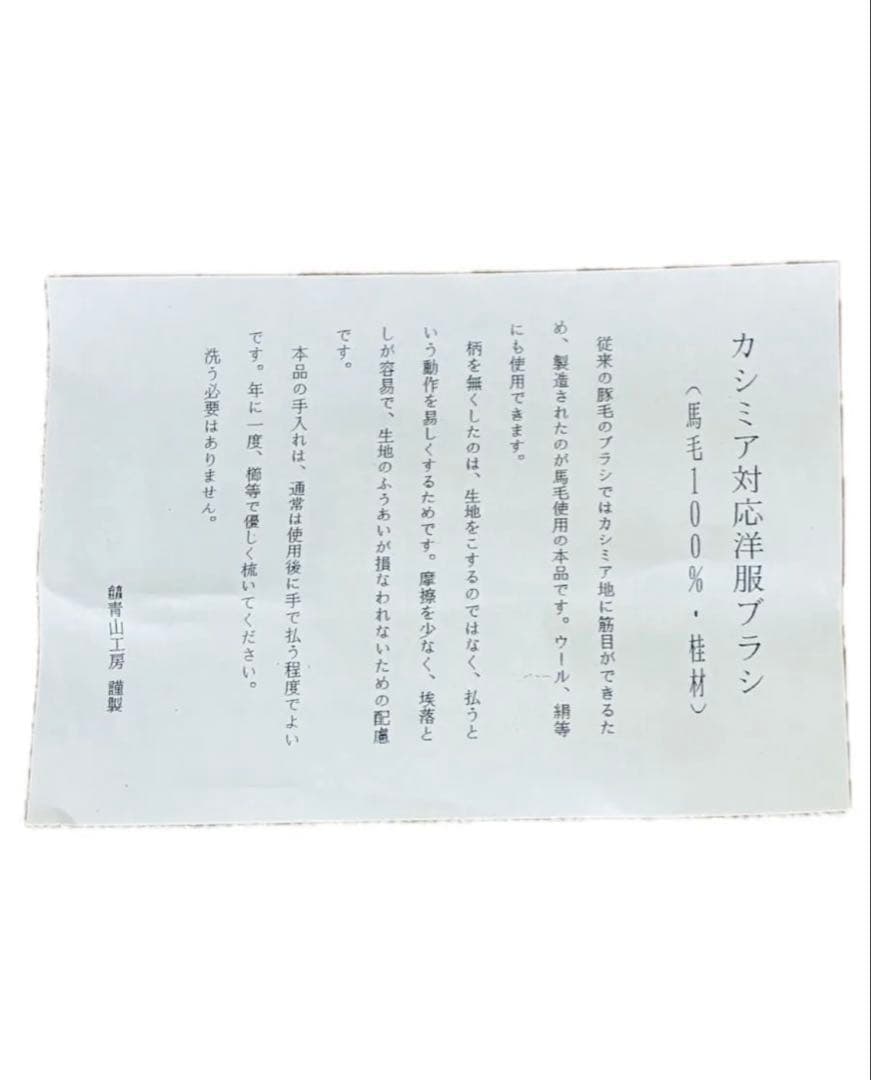 カシミア対応洋服ブラシ
（馬毛１００％・桂材）
従来の豚毛のブラシではカシミア地に筋目ができるた
め、製造されたのが馬毛使用の本品です。ウール、絹等
にも使用できます。
柄を無くしたのは、生地をこするのではなく、払うと
いう動作を易しくするためです。摩擦を少なく、埃落と
しが容易で、生地のふうあいが損なわれないための配慮
です。
本品の手入れは、通常は使用後に手で払う程度でよい
です。年に一度、櫛等で優しく梳いてください。
洗う必要はありません。
青山工房 謹製